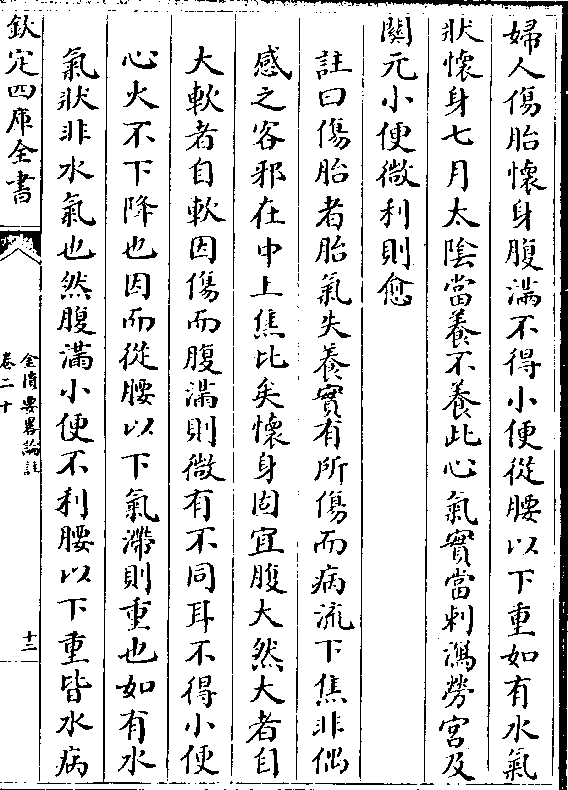 婦人傷胎懷身腹滿不得小便從腰以下重如有水氣
狀懷身七月太陰當養不養此心氣實當刺瀉勞宮及
關元小便微利則愈
註曰傷胎者胎氣失養實有所傷而病流下焦非偶
感之客邪在中上焦比矣懷身固宜腹大然大者自
大軟者自軟因傷而腹滿則微有不同耳不得小便
心火不下降也因而從腰以下氣滯則重也如有水
氣狀非水氣也然腹滿小便不利腰以下重皆水病
欽定四庫全書
金匱要畧論註
卷二十
十三